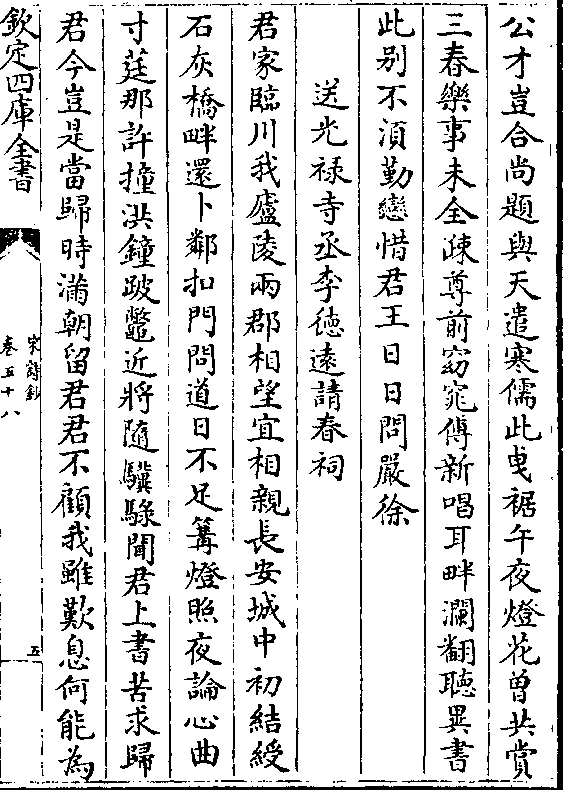 公才豈合尚題輿天遣寒儒此曵裾午夜燈花曾共賞
三春樂事未全疎尊前窈窕傳新唱耳畔瀾翻聽異書
此别不須勤戀惜君王日日問嚴徐
送光禄寺丞李徳遠請春祠
君家臨川我廬陵兩郡相望宜相親長安城中初結綬
石灰橋畔還卜鄰扣門問道日不足篝燈照夜論心曲
寸莛那許撞洪鐘跛鼈近將隨驥騄聞君上書苦求歸
君今豈是當歸時滿朝留君君不顧我雖歎息何能為
欽定四庫全書
宋詩鈔
卷五十八
五